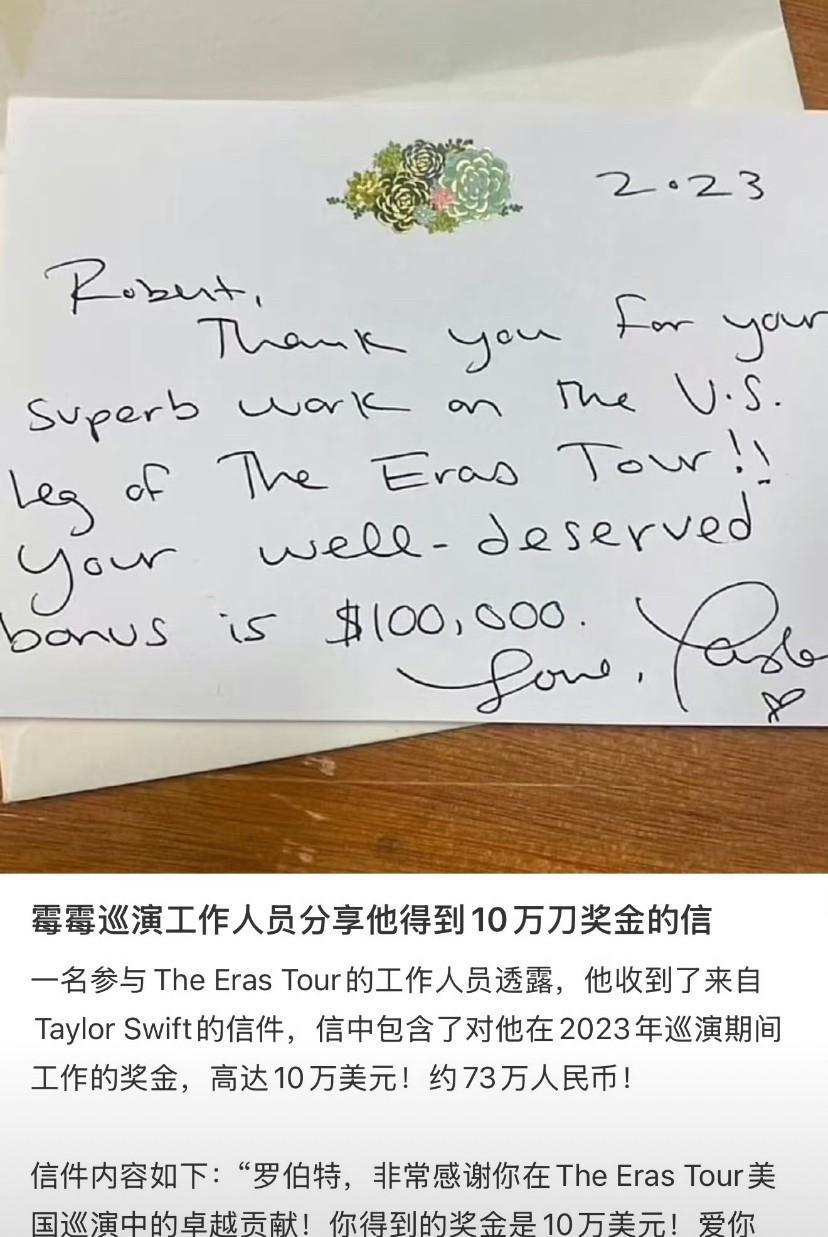 2.23
Robert,
Thank you for your
superb work on the U.S.
leg of The Eras Tour!!
Your well-deserved
bonus is $100,000.
Love,
霉霉巡演工作人员分享他得到10万刀奖金的信
一名参与The Eras Tour的工作人员透露，他收到了来自
Taylor Swift的信件，信中包含了对他在2023年巡演期间
工作的奖金，高达10万美元！约73万人民币！
信件内容如下：“罗伯特，非常感谢你在The Eras Tour美
国巡演中的卓越贡献！你得到的奖金是10万美元！爱你